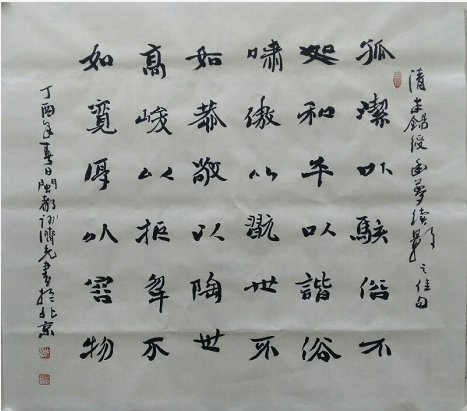 清朱錫綬幽夢續影之佳句
孤潔以駭俗不
如和平以諧俗
嘯傲以翫世不
如恭敬以陶世
高峻以拒不
如寬厚以容物
丁酉年春日閩都濟書於北京